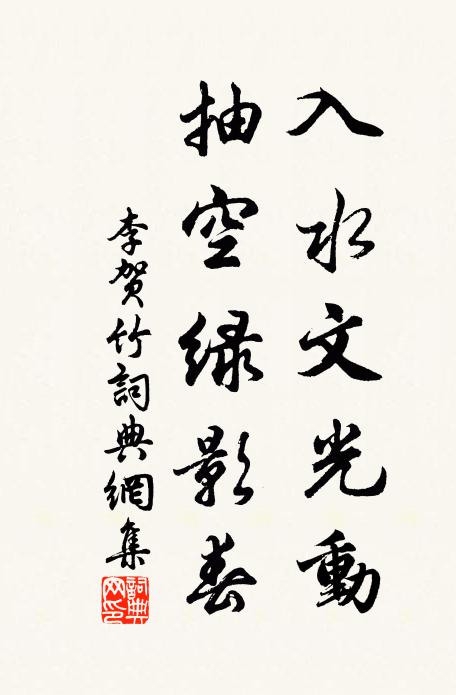 入水文光動
抽空绿影春
李贺竹詞典網集
詞典網印